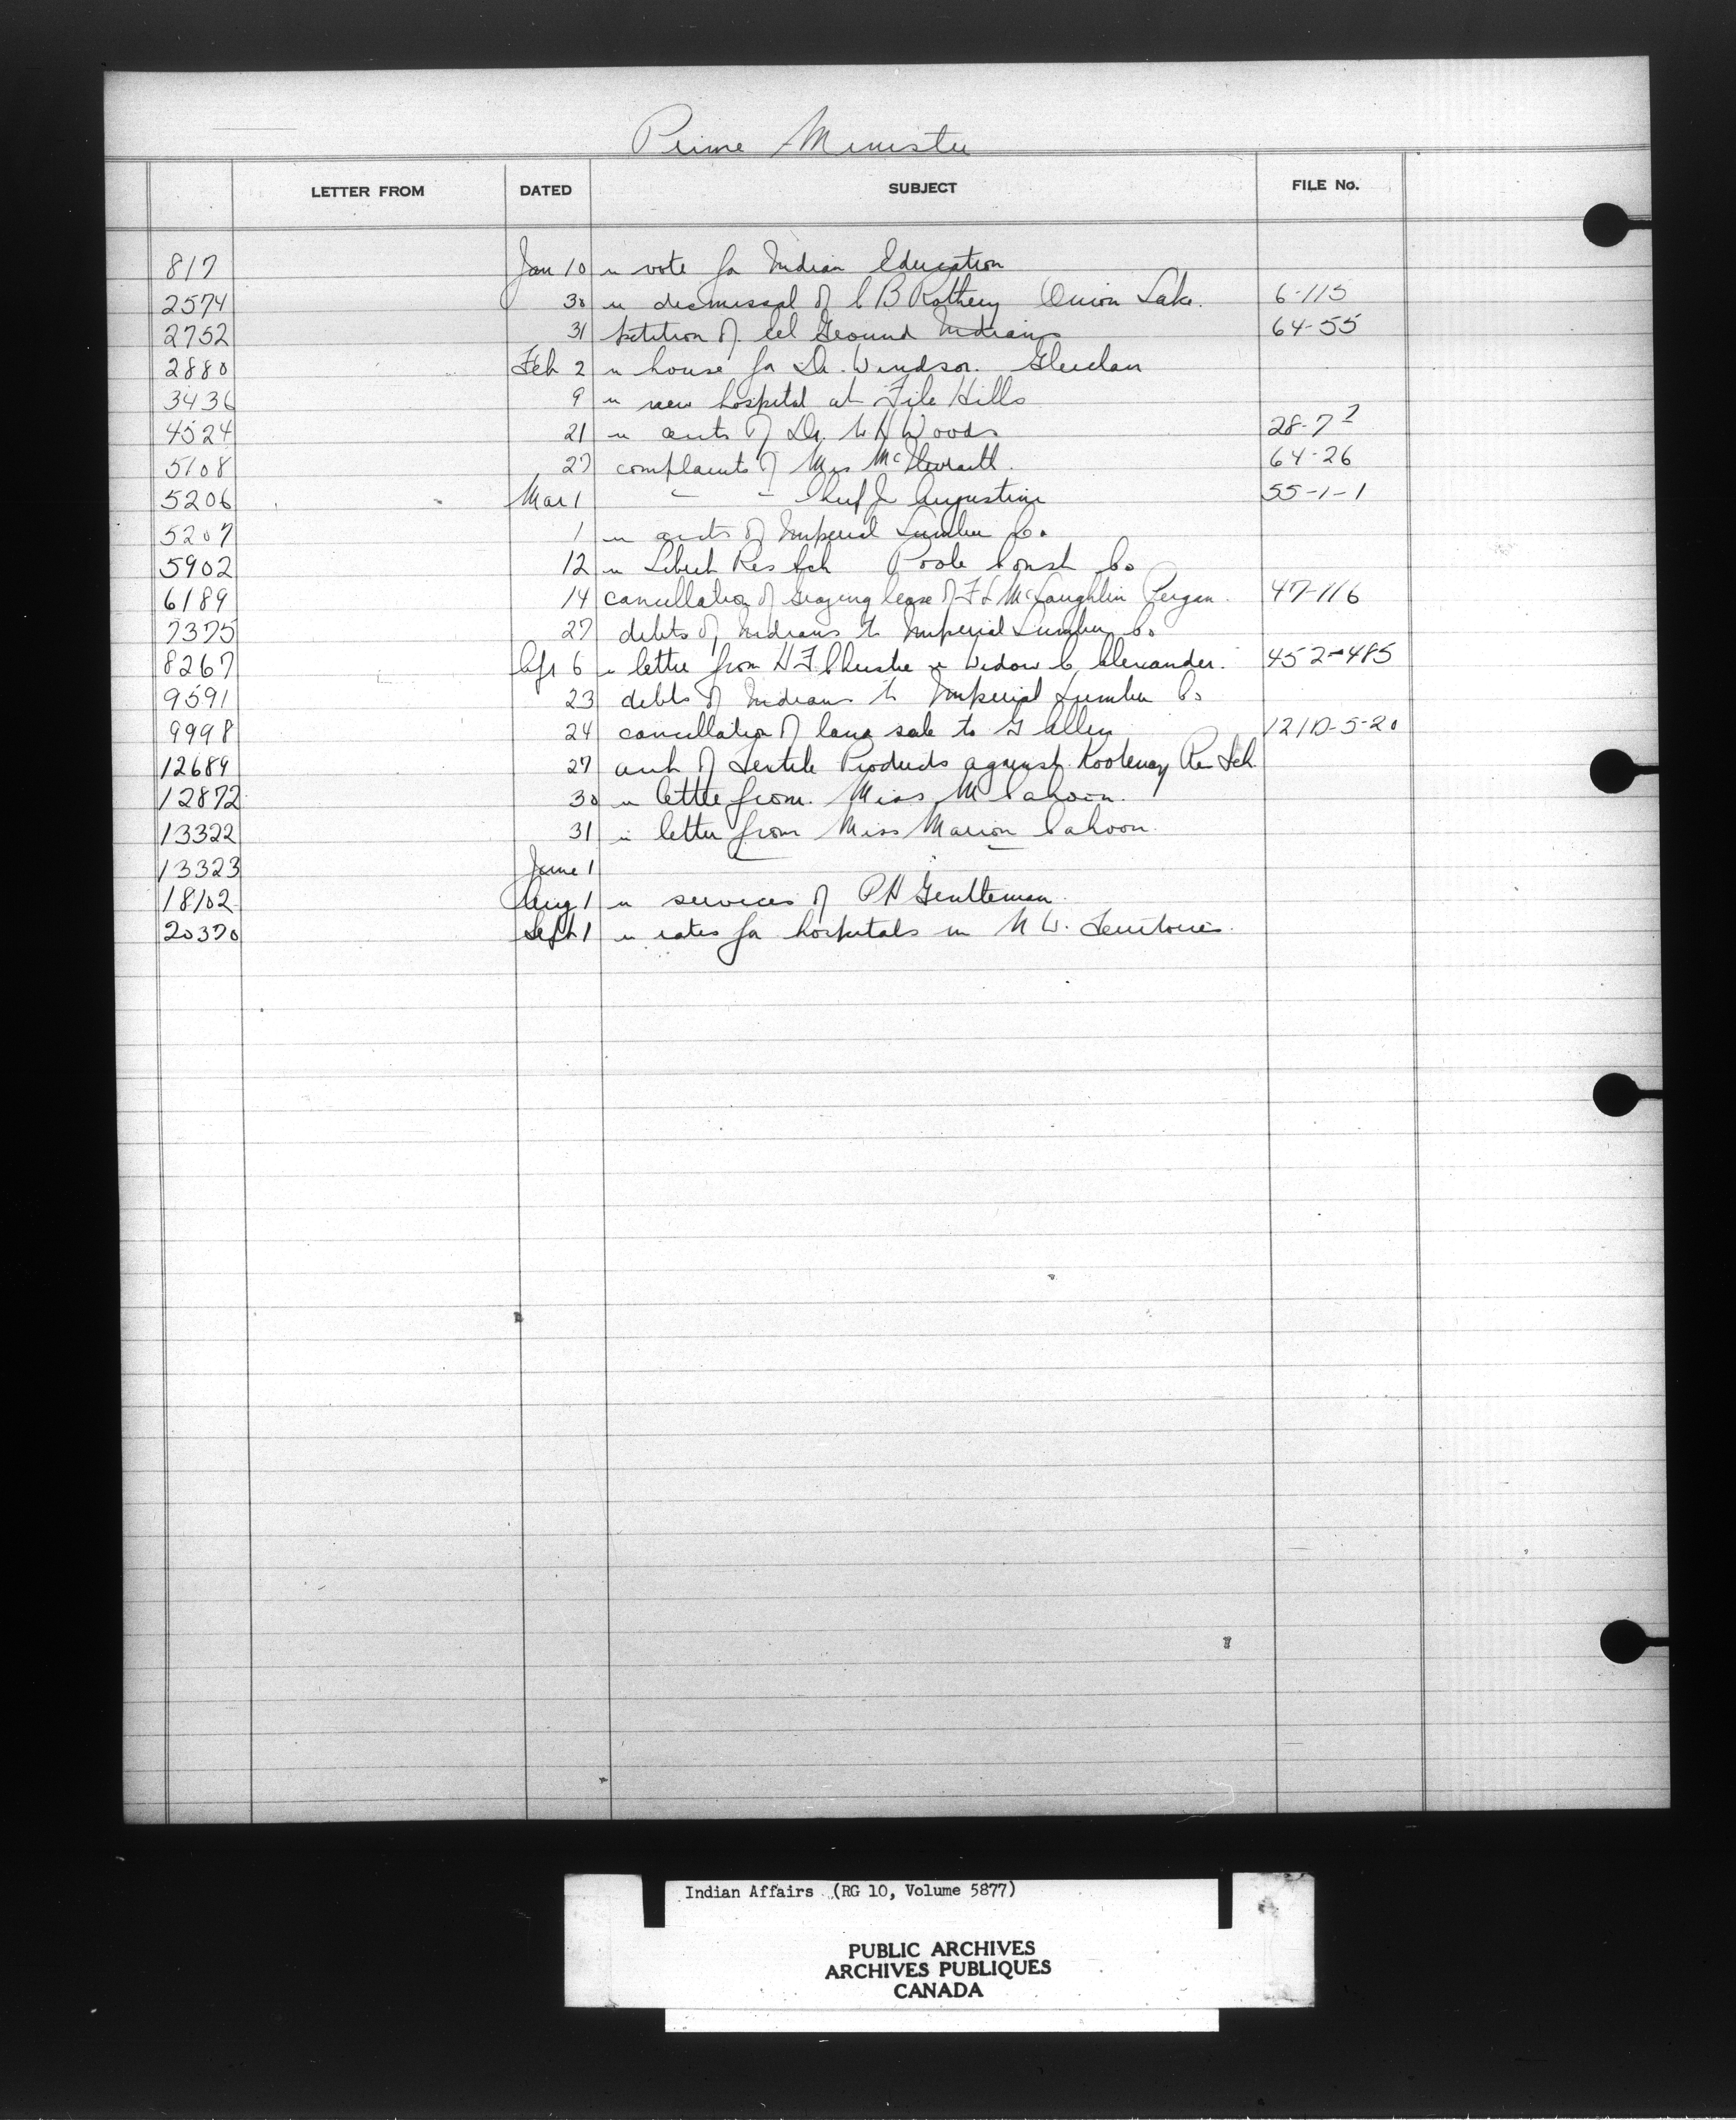 Prime Minister
LETTER FROM DATED SUBJECT FILE No.
817 Jan 10 in vote for Indian Education
2574 30 in dismissal of C B Rothery Onion Lake. 6-115
2752 31 petition of Eel Ground Indians 64-55
2880 Feb 2 in house for Dr. Windsor. Gleichen
3436 9 in new hospital at File Hills
4524 21 in accts of Dr. W H Woods 28-7 2
5108 27 complaints of Mrs 64-26
5206 Mar 1 " " Chief J Augustine 55-1-1
5207 1 in accts of Imperial Lumber Co.
5902 12 in Res Sch Poole Const Co
6189 14 cancellation of Grazing lease of F L McLaughlin Peigan. 47-116
7375 27 debts of Indians to Imperial Lumber Co
8267 Apr 6 in letter from H F Christie in Widow C Alexander. 452-485
9591 23 debts of Indians to Imperial Lumber Co
9998 24 cancellation of land sale to G Allen 121D-5-20
12689 27 acct of Textile Products against Kootenay Res Sch
12872 30 in letter from Miss M Cahoon.
13322 31 in letter from Miss Marion Cahoon.
13323 June 1
18102 Aug 1 in services of P H Gentleman.
20370 Sept 1 in rates for hospitals in N W. Territories.
Indian Affairs (RG 10, Volume 5877)
PUBLIC ARCHIVES
ARCHIVES PUBLIQUES
CANADA